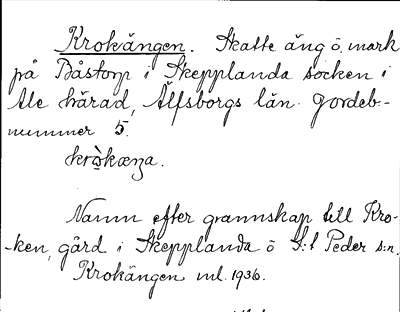 Krokängen. Skatte äng ö. mark
på Båstorp i Skepplanda socken i
Ale härad, Älfsborgs län. Jordeb.-
nummer 5.
krò̀kæŋa.
Namn efter grannskap till Kro-
-ken, gård i Skepplanda ö S:t Peder s:n.
Krokängen ml. 1936.